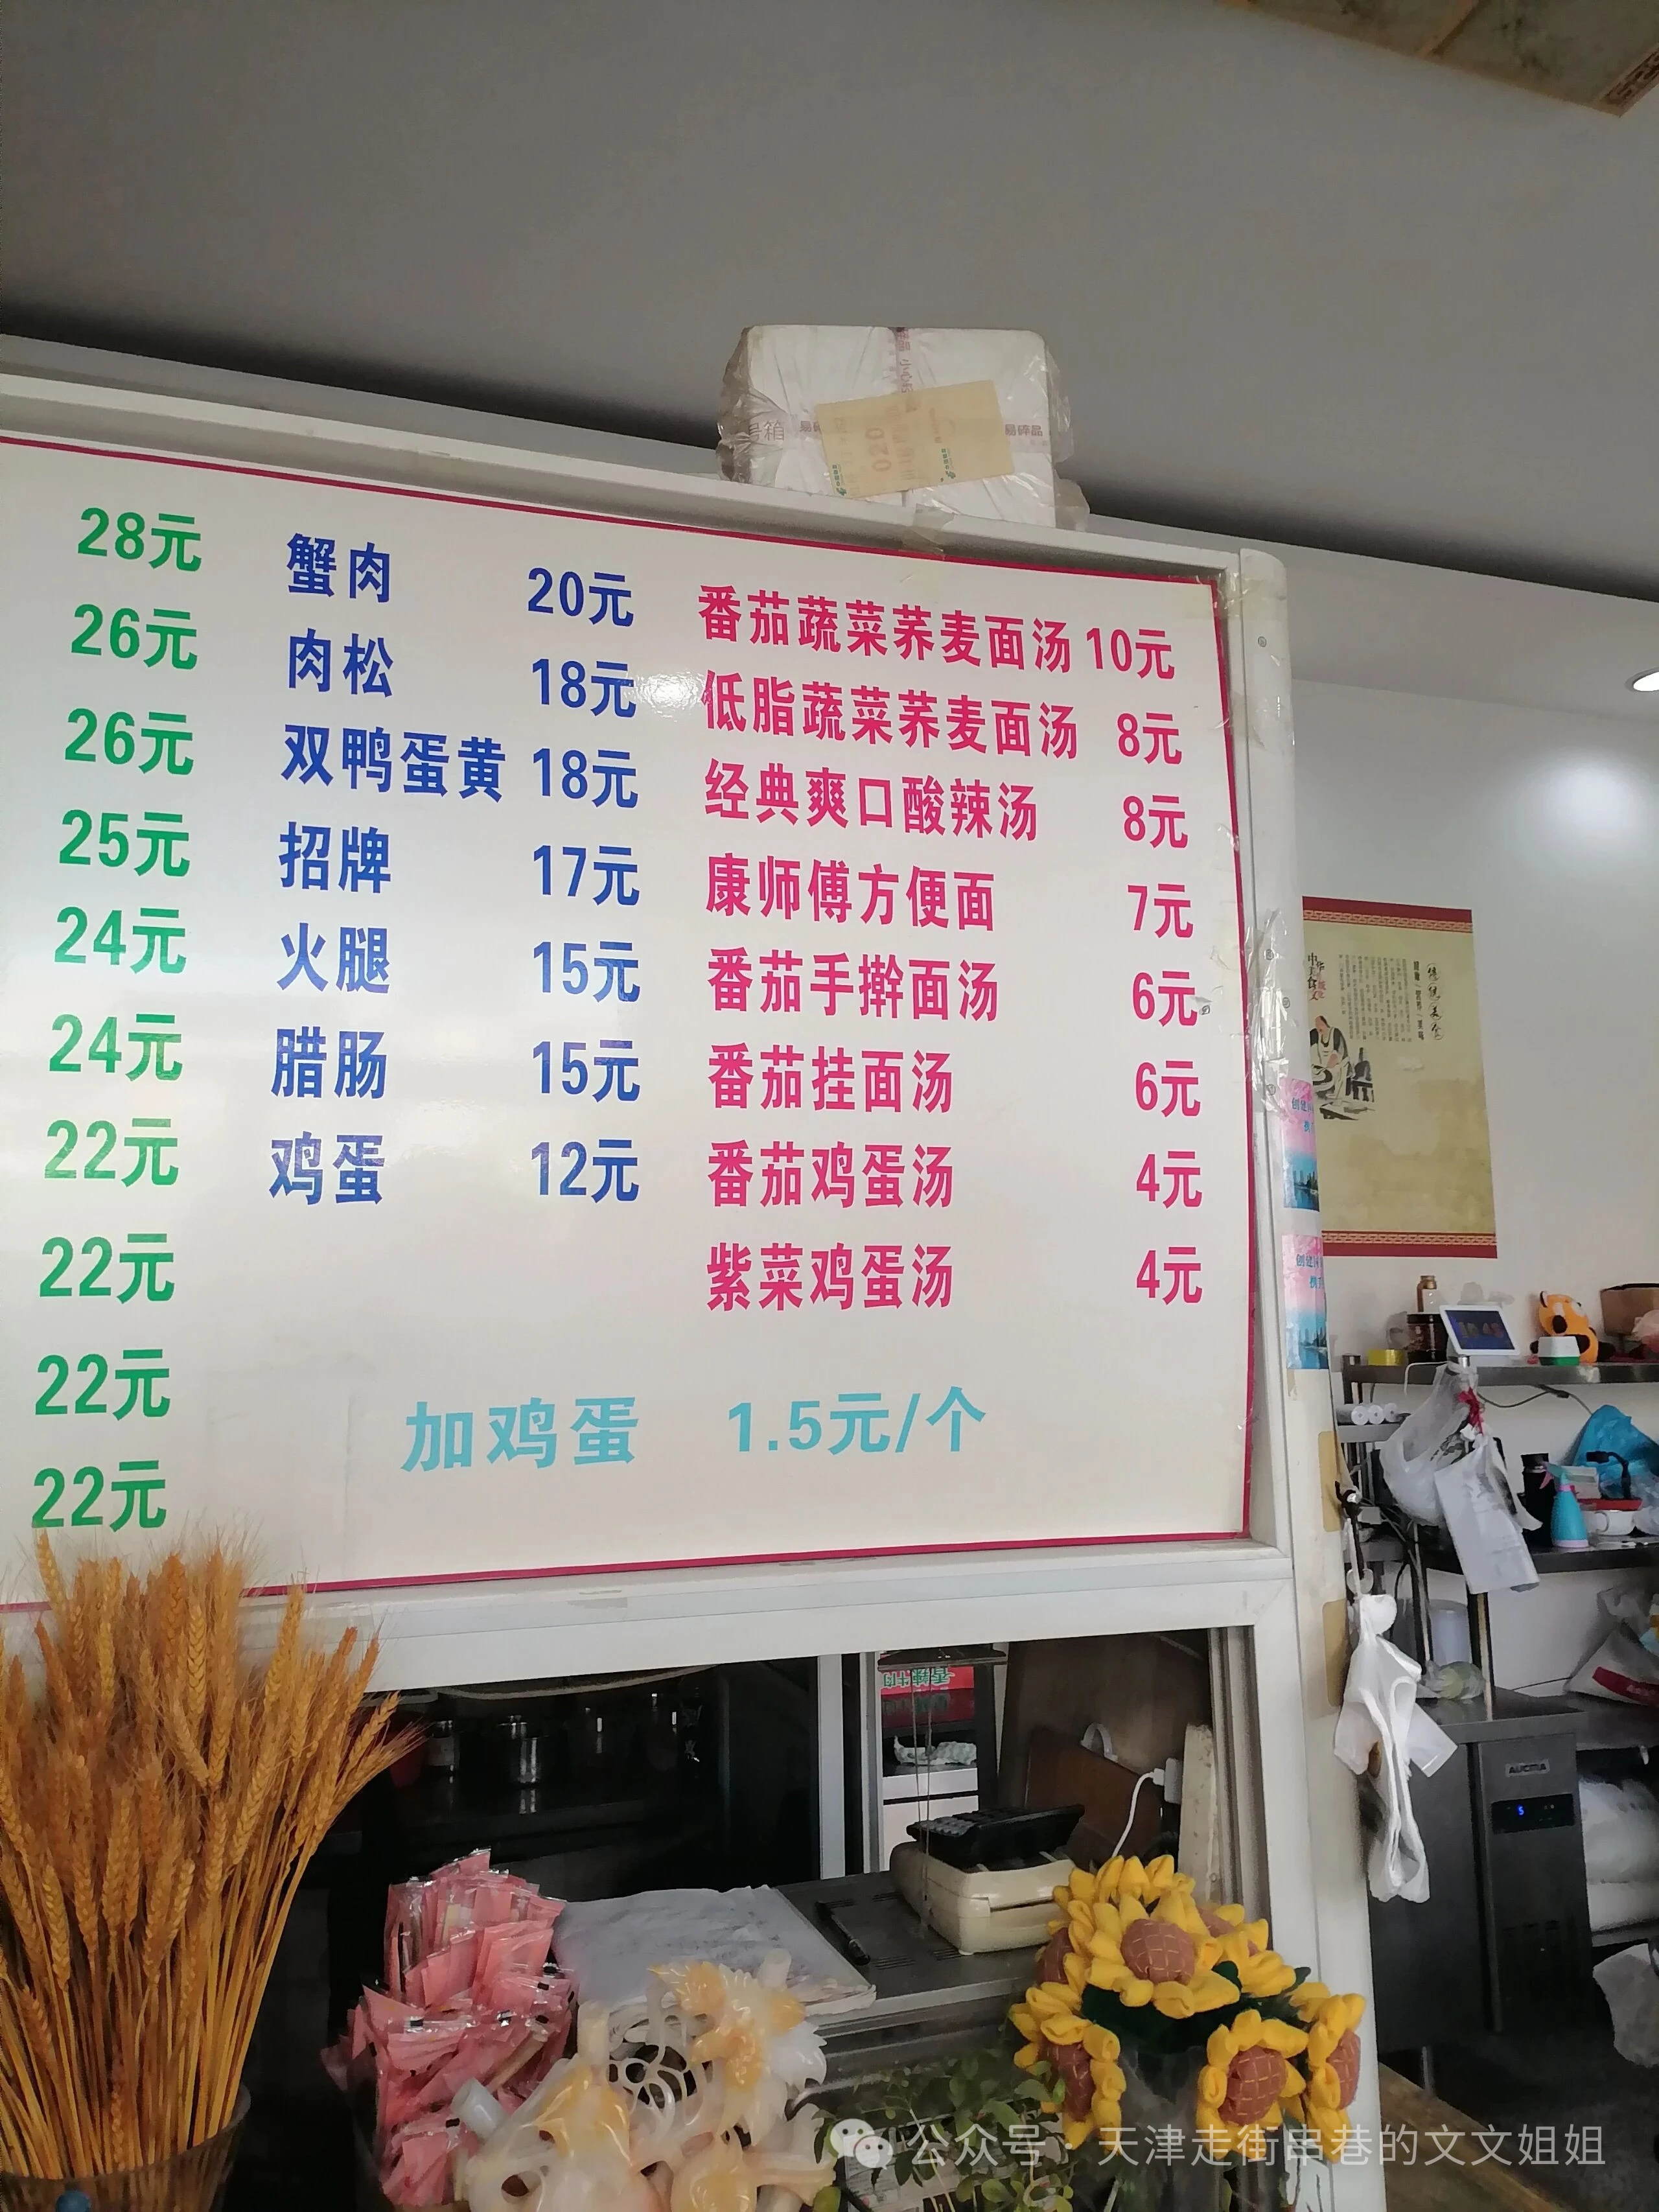 易碎品
28元 蟹肉 20元 番茄蔬菜荞麦面汤 10元
26元 肉松 18元 低脂蔬菜荞麦面汤 8元
26元 双鸭蛋黄 18元 经典爽口酸辣汤 8元
25元 招牌 17元 康师傅方便面 7元
24元 火腿 15元 番茄手擀面汤 6元
24元 腊肠 15元 番茄挂面汤 6元
22元 鸡蛋 12元 番茄鸡蛋汤 4元
22元 紫菜鸡蛋汤 4元
22元
22元
加鸡蛋 1.5元/个
AUCMA
公众号·天津走街串巷的文文姐姐